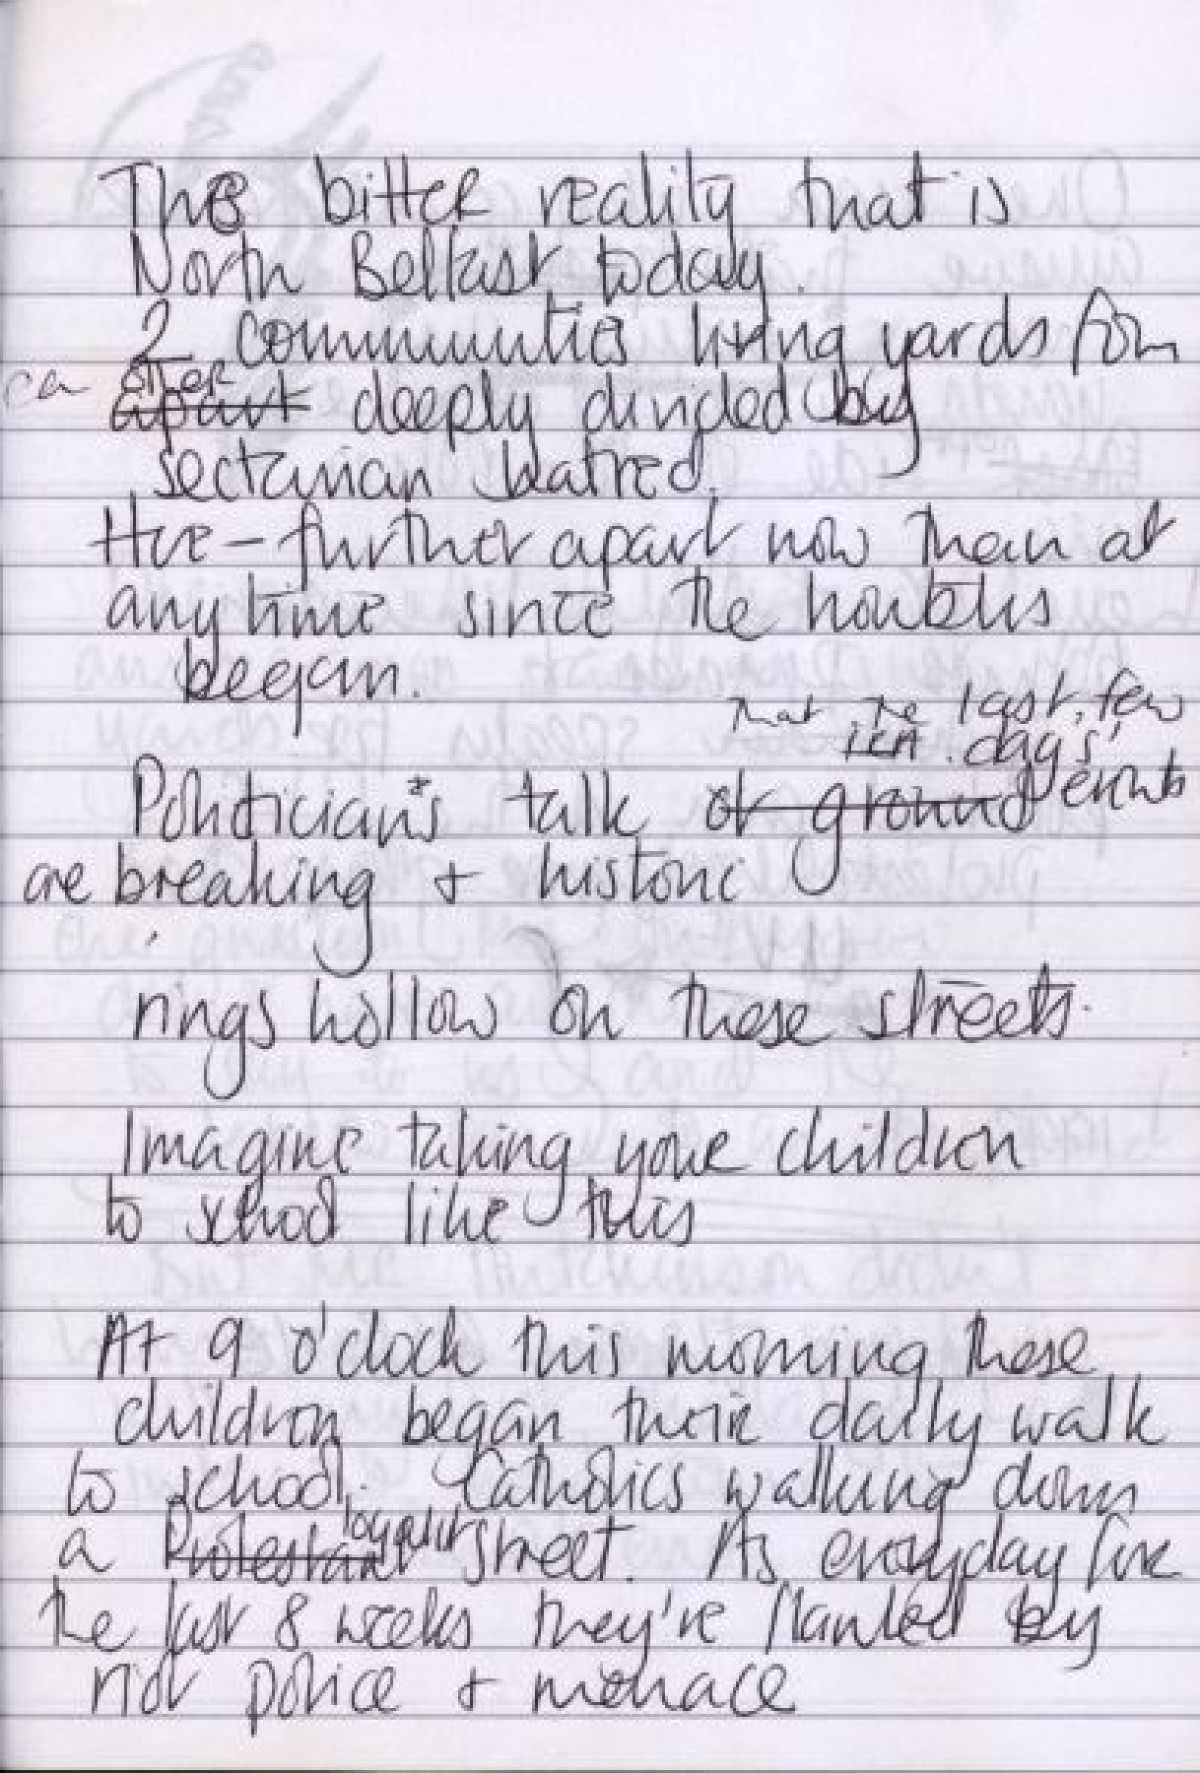 The bitter reality that is
North Belfast today.
2 communities living yards from
ea other
apart deeply divided by
sectarian hatred.
Here - further apart now than at
anytime since the troubles
began.
that the last few
ten days'
Politicians talk of ground events
are breaking + historic
rings hollow on these streets.
Imagine taking your children
to school like this
At 9 o'clock this morning these
children began their daily walk
to school. Catholics walking down
loyalist
a Protestant street. As everyday for
the last 8 weeks they're flanked by
riot police + menace